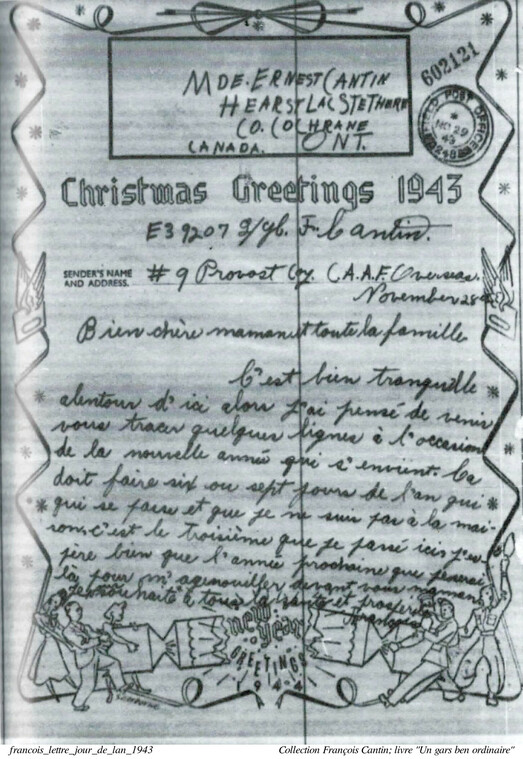 602121
MDE. ERNEST CANTIN
HEARST LAC STE THERESE
CO. COCHRANE
CANADA. ONT.
FIELD POST OFFICE
NO 29
43
Christmas Greetings 1943
E39207 F. Cantin.
SENDER'S NAME
AND ADDRESS.
# 9 Provost Coy. C.A. Overseas.
November 28
Bien chère maman et toute la famille
C'est bien tranquille
alentour d'ici alors j'ai pensé de venir
vous tracer quelques lignes à l'occasion
de la nouvelle année qui s'envient. Ca
doit faire six ou sept jours de l'an qui
qui se passe et que je ne suis pas à la mai-
son, c'est le troisième que je passé ici j'es-
père bien que l'année prochaine que je serai
là pour m'agenouiller devant vous maman
souhaite à tous la santé et prospérité
François
new
year
GREETINGS
1944
francois_lettre_jour_de_lan_1943
Collection François Cantin; livre "Un gars ben ordinaire"